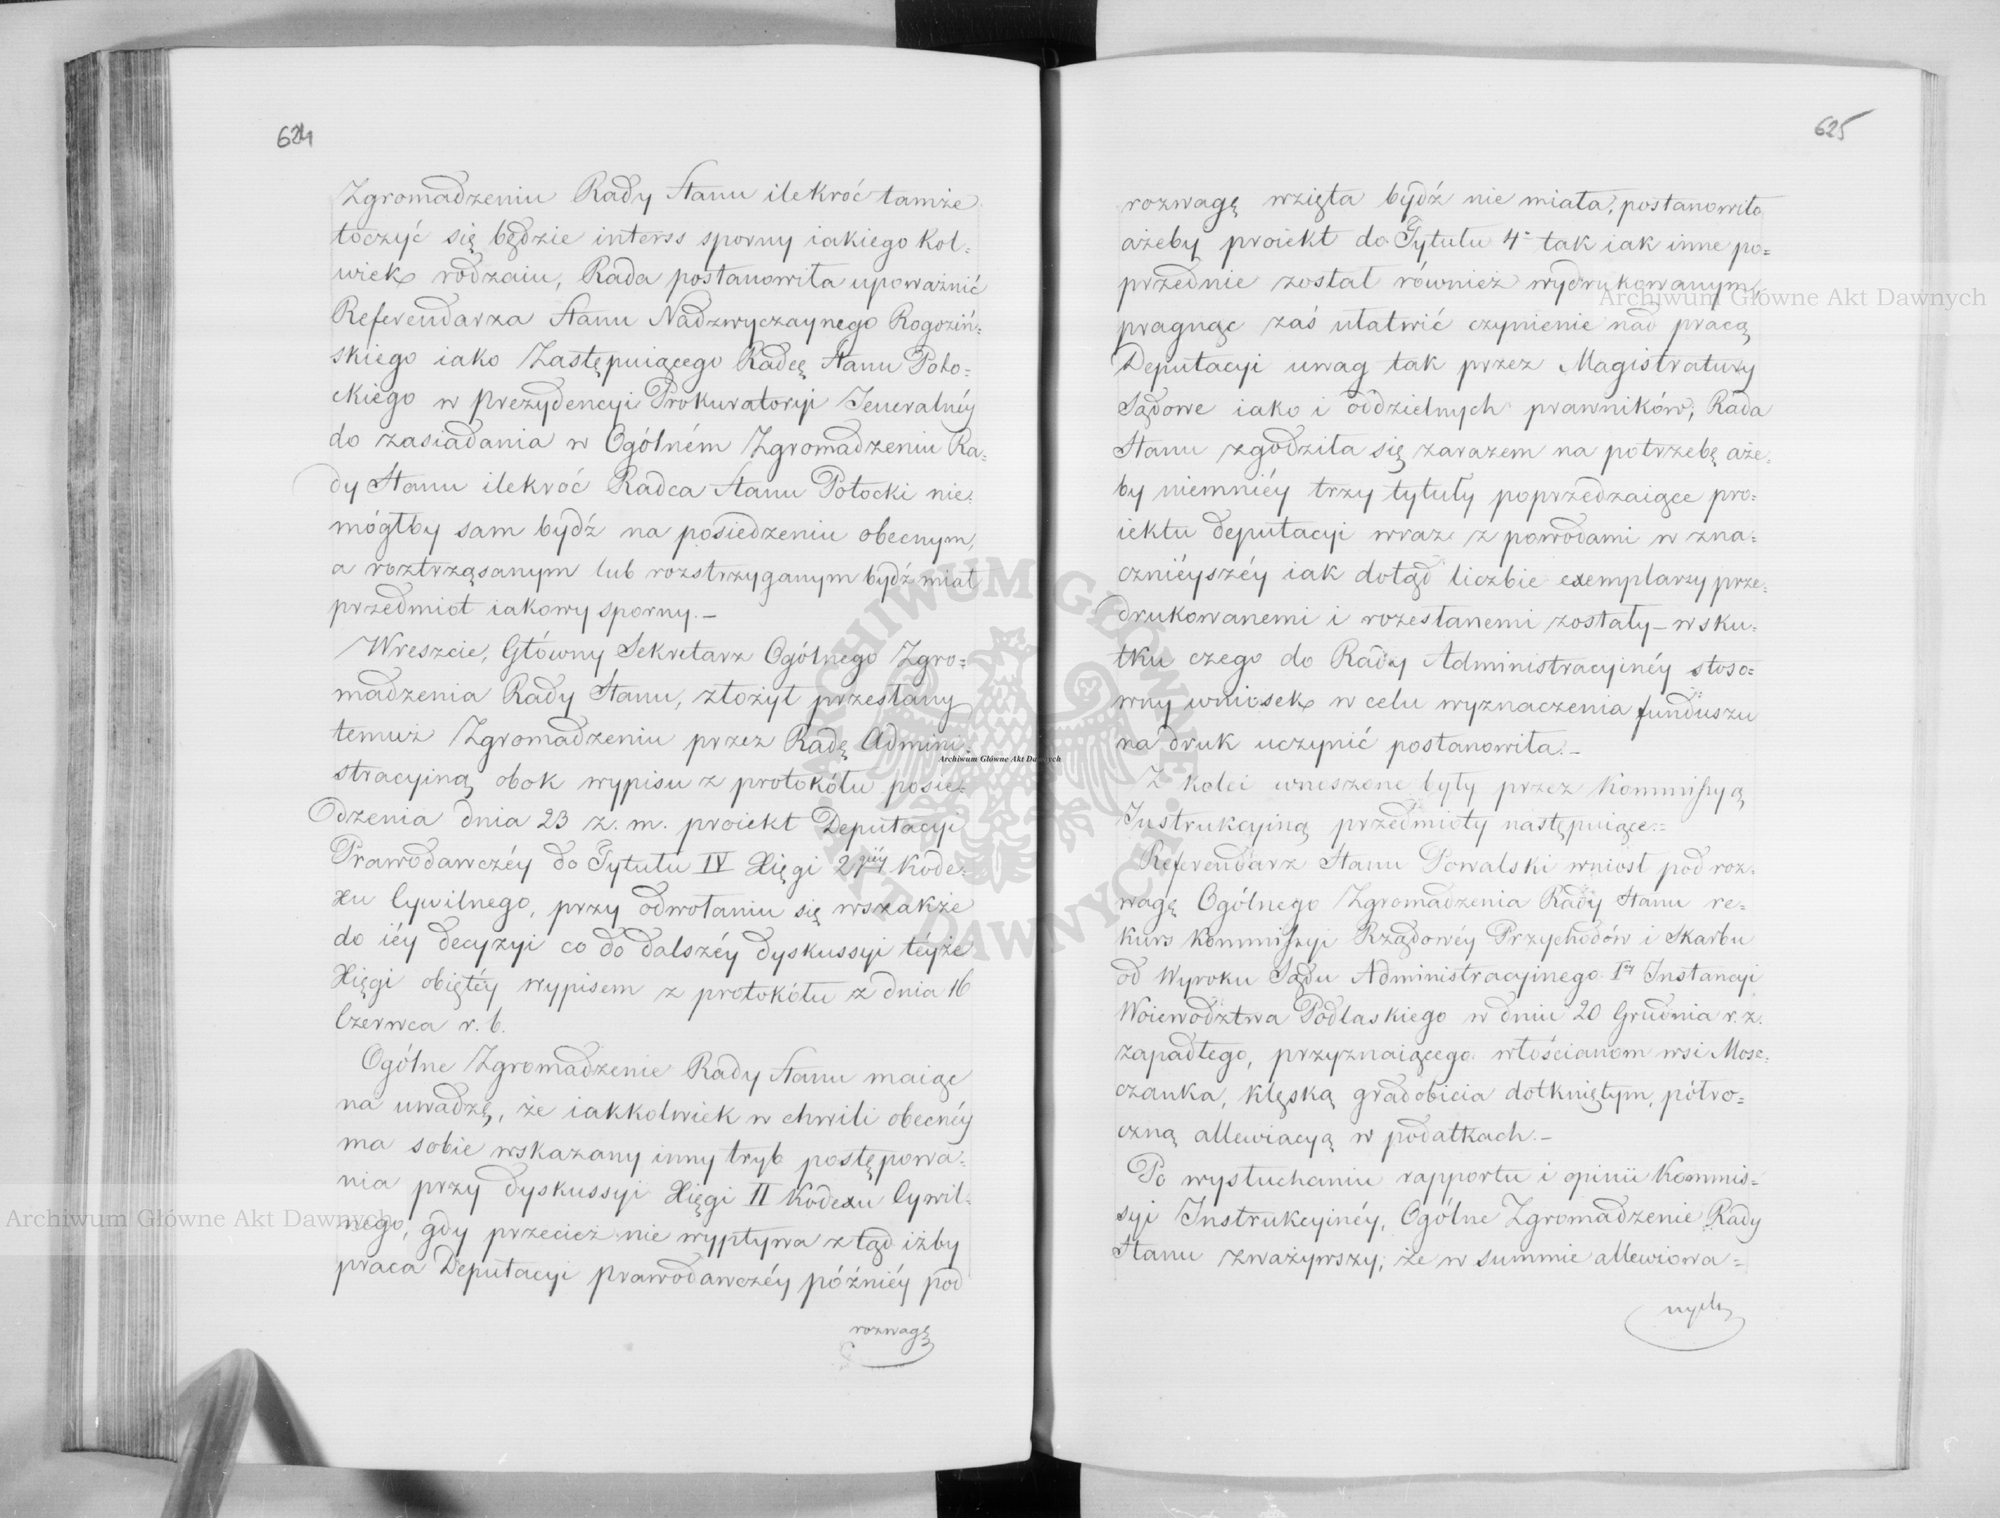 624
Zgromadzeniu Rady Stanu ilekroć tamże
toczyć się będzie interss sporny iakiego kol=
wiek rodzaiu, Rada postanowiła upoważnić
Referendarza Stanu Nadzwyczaynego Rogoziń=
skiego iako Zastępuiącego Radcę Stanu Poto=
ckiego w Prezydencyi Prokuratoryi Jeneralnéy
do zasiadania w Ogólném Zgromadzeniu Ra=
dy Stanu ilekroć Radca Stanu Potocki nie=
mógłby sam bydź na posiedzeniu obecnym,
a roztrząsanym lub rozstrzyganym bydź miał
przedmiot iakowy sporny.—
Wreszcie, Główny Sekretarz Ogólnego Zgro=
madzenia Rady Stanu, złożył przesłany
temuż Zgromadzeniu przez Radę Admini=
stracyiną obok wypisu z protokółu posie=
dzenia dnia 23 z. m. proiekt Deputacyi
Prawodawczéy do Tytułu IV Xięgi 2giéy Kode=
xu Cywilnego, przy odwołaniu się wszakże
do iéy decyzyi co do dalszéy dyskussyi téyże
Xięgi obiętéy wypisem z protokółu z dnia 16
Czerwca r. b.
Ogólne Zgromadzenie Rady Stanu maiąc
na uwadzę, że iakkolwiek w chwili obecnéy
ma sobie wskazany inny tryb postępowa=
nia przy dyskussyi Xięgi II Kodexu Cywil=
nego, gdy przecież nie wypływa ztąd iżby
praca Deputacyi prawodawczéy późniéy pod
rozwagę
625
rozwagę wzięta bydź nie miała, postanowiło
ażeby proiekt do Tytułu 4º tak iak inne po=
przednie został również wydrukowanym,
pragnąc zaś ułatwić czynienie nad pracą
Deputacyi uwag tak przez Magistratury
Sądowe iako i oddzielnych prawników, Rada
Stanu zgodziła się zarazem na potrzebę aże=
by niemniéy trzy tytuły poprzedzaiące pro=
iektu deputacyi wraz z powodami w zna=
czniéyszéy iak dotąd liczbie exemplarzy prze=
drukowanemi i rozesłanemi zostały — w sku=
tku czego do Rady Administracyinéy stoso=
wny wniosek w celu wyznaczenia funduszu
na druk uczynić postanowiła.—
Z kolei wnoszone były przez Kommissyą
Instrukcyiną przedmioty następuiące:=
Referendarz Stanu Powalski wniosł pod roz=
wagę Ogólnego Zgromadzenia Rady Stanu re=
kurs Kommissyi Rządowéy Przychodów i Skarbu
od Wyroku Sądu Administracyinego Iéy Instancyi
Woiewództwa Podlaskiego w dniu 20 Grudnia r. z.
zapadłego, przyznaiącego włościanom wsi Mosz=
czanka, klęską gradobicia dotkniętym, półro=
czną allewiacyą w podatkach.—
Po wysłuchaniu rapportu i opinii Kommis=
syi Instrukcyinéy, Ogólne Zgromadzenie Rady
Stanu zważywszy, że w summie allewiowa=
nych
Archiwum Główne Akt Dawnych
Archiwum Główne Akt Dawnych
Archiwum Główne Akt Dawnych
ARCHIWUM GŁÓWNE AKT DAWNYCH